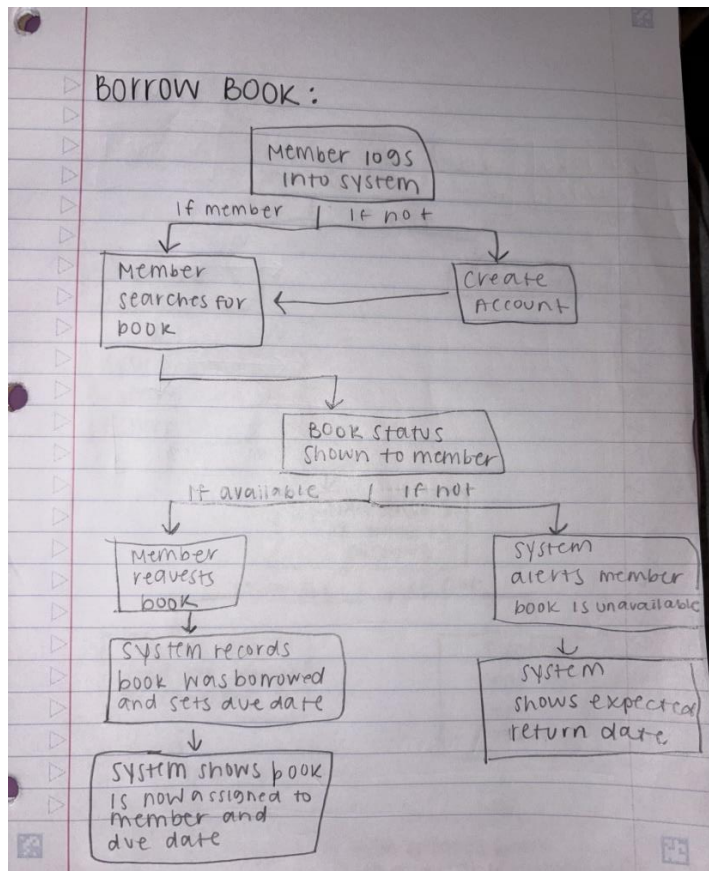 BORROW BOOK:
Member logs
into system
If member
If not
Member
searches for
book
Create
Account
Book status
shown to member
If available
If not
Member
requests
book
System
alerts member
book is unavailable
System records
book was borrowed
and sets due date
System
shows expected
return date
System shows book
is now assigned to
member and
due date